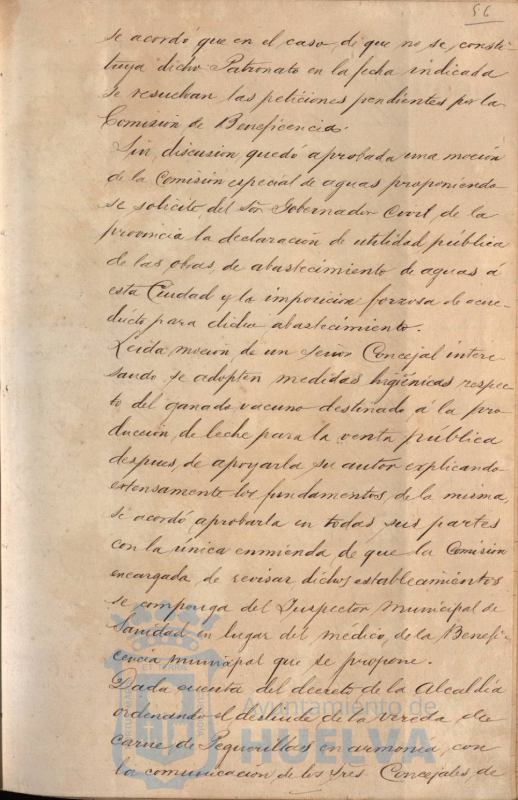 56
se acordó que en el caso, de que no se consti-
tuya dicho Patronato en la fecha indicada
se resuelvan las peticiones pendientes por la
Comisión de Beneficencia.
Sin discusion quedó aprobada una moción
de la Comisión especial de aguas proponiendo
se solicite del Sor Gobernador Civil, de la
provincia la declaración de utilidad pública
de las obras, de abastecimiento de aguas á
esta Ciudad y la imposicion forzosa de acue-
ducto para dicho abastecimiento.
Leida moción, de un señor Concejal intere-
sando se adopten medidas higiénicas respec-
to del ganado vacuno destinado á la pro-
ducción, de leche para la venta pública
despues, de apoyarla su autor explicando
extensamente los fundamentos, de la misma,
se acordó aprobarla en todas sus partes
con la única enmienda de que la Comisión
encargada, de revisar dichos establecimientos
se componga del Inspector Municipal de
Sanidad en lugar del médico, de la Benefi-
cencia municipal que se propone.
Dada cuenta del decreto de la Alcaldía
ordenando el deslinde de la vereda de
carne, de Peguerillas en armonía, con
la comunicación de los tres Concejales, de
Ayuntamiento de
HUELVA